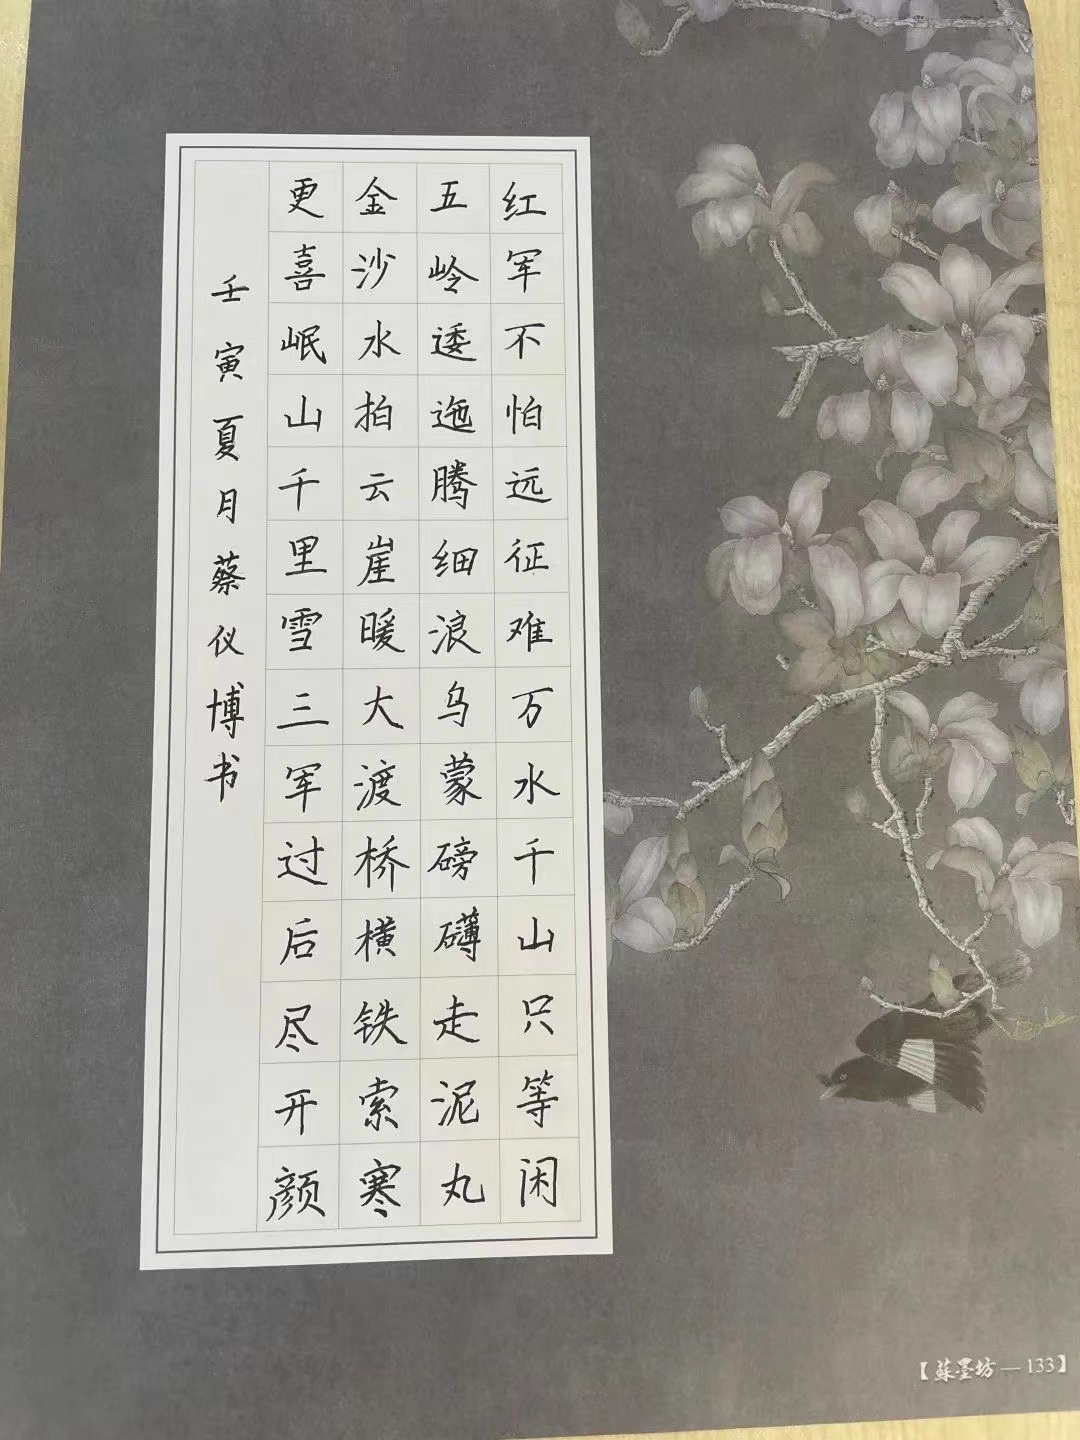 红军不怕远征难万水千山只等闲
五岭逶迤腾细浪乌蒙磅礴走泥丸
金沙水拍云崖暖大渡桥横铁索寒
更喜岷山千里雪三军过后尽开颜
壬寅夏月蔡仪博书
【蘇墨坊—133】